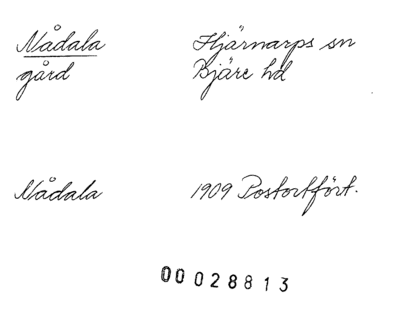 Nådala Hjärnarps sn
gård Bjäre hd
Nådala 1909 Postortfört.
00028813